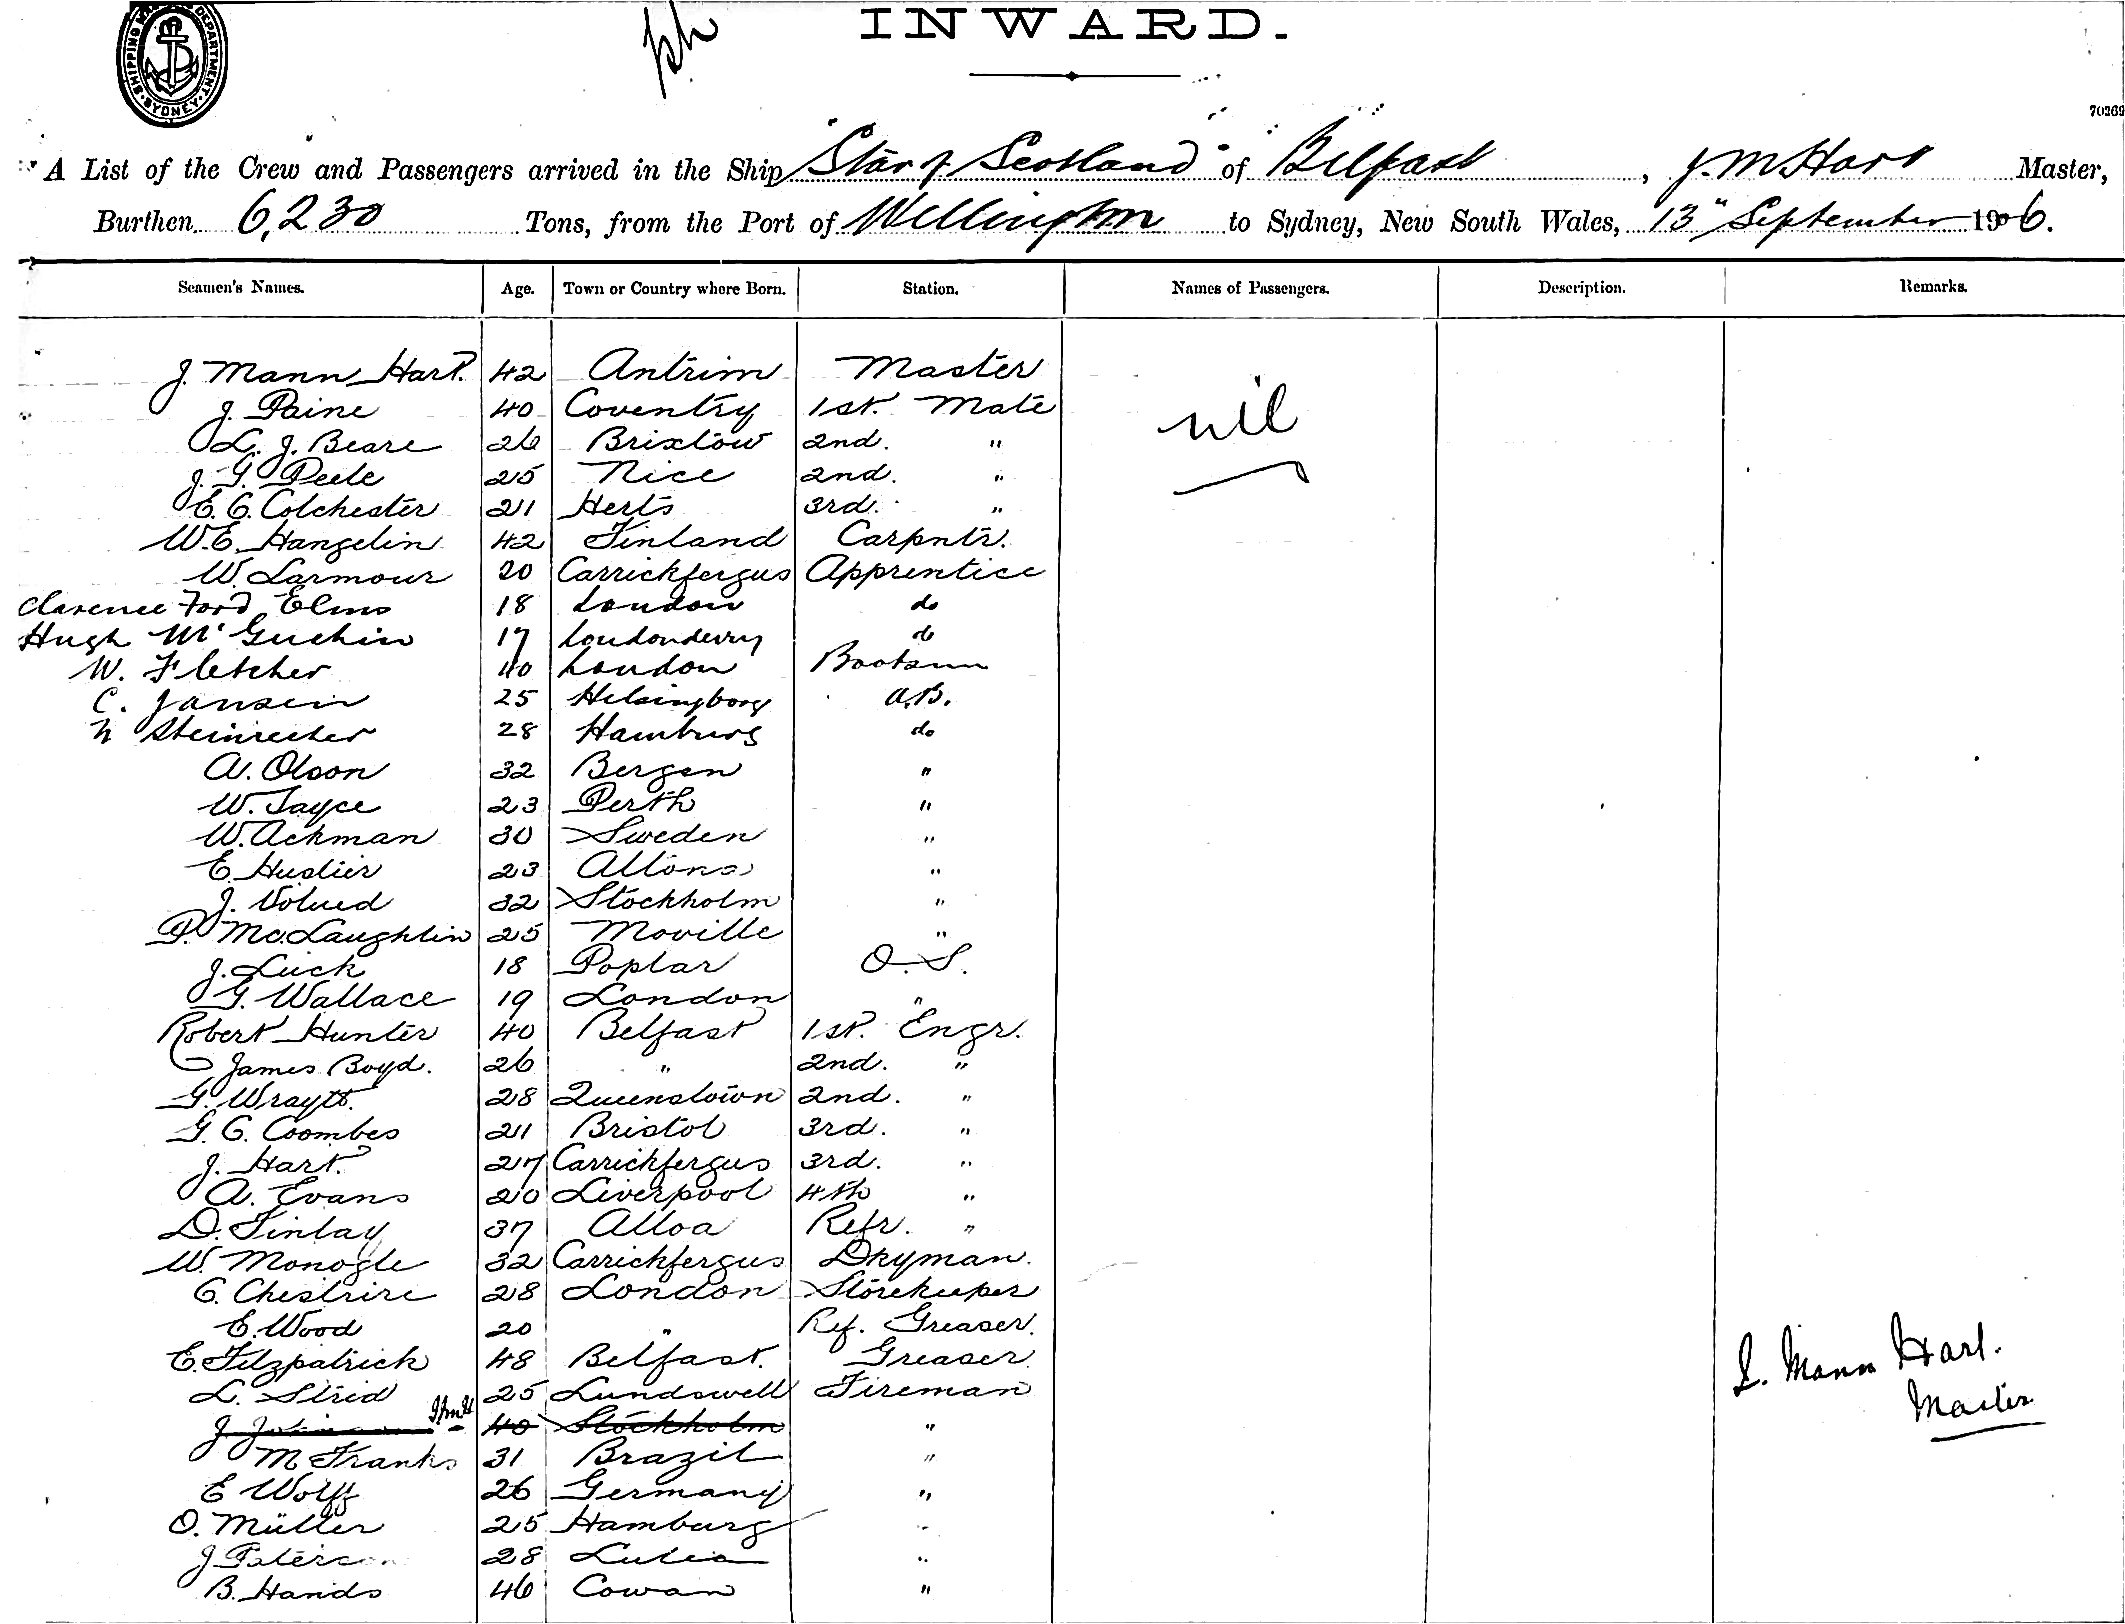 SHIPPING MASTER'S DEPARTMENT
SYDNEY
INWARD.
70269
A List of the Crew and Passengers arrived in the Ship "Star of Scotland" of Belfast, J. M Hart Master,
Burthen 6,230 Tons, from the Port of Wellington to Sydney, New South Wales, 13" September 1906.
Seamen's Names. Age. Town or Country where Born. Station. Names of Passengers. Description. Remarks.
J. Mann Hart. 42 Antrim Master
nil
J. Paine 40 Coventry 1st. Mate
L. J. Beare 26 Brixtow 2nd. "
J. G. Peele 25 Nice 2nd. "
E. C. Colchester 21 Herts 3rd. "
W. E. Hangelin 42 Finland Carpntr.
W. Larmour 20 Carrickfergus Apprentice
Clarence Ford Elms 18 London do
Hugh McGuckin 17 Londonderry do
W. Fletcher 40 London Boatsun
C. Jansen 25 Helsingborg A.B.
N Steinrecker 28 Hamburg do
A. Olson 32 Bergen "
W. Jayce 23 Perth "
W. Ackman 30 Sweden "
E. Huslier 23 Altona "
J. Volued 32 Stockholm "
P. McLaughlin 25 Moville "
J. Luck 18 Poplar O.S.
G. Wallace 19 London "
Robert Hunter 40 Belfast 1st. Engr.
James Boyd. 26 " 2nd. "
G. Wraytt. 28 Queenstown 2nd. "
G. C. Coombes 21 Bristol 3rd. "
J. Hart. 27 Carrickfergus 3rd. "
A. Evans 20 Liverpool 4th "
D. Finlay 37 Alloa Refr. "
W. Monogle 32 Carrickfergus Dkyman.
C. Chestrire 28 London Storekeeper
E. Wood 20 " Ref. Greaser.
E. Fitzpatrick 48 Belfast. Greaser.
L. Strid 25 Lundswell Fireman
J. 40 Stockholm "
M Franks 31 Brazil "
E Wolff 26 Germany "
O. Müller 25 Hamburg "
J Peterson 28 Lulea "
B. Hands 46 Cowan "
J. Mann Hart.
Master